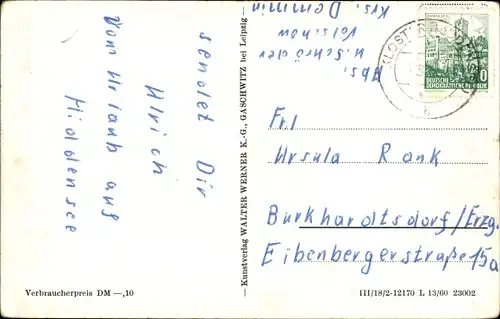 Vom Urlaub auf
Hiddensee
sendet Dir
Ulrich
Verbraucherpreis DM —,10
— Kunstverlag WALTER WERNER K.-G., GASCHWITZ bei Leipzig —
Abs.
U. Schröder
Völschow
Krs. Demmin
KLOSTER
DEUTSCHE
DEMOKRATISCHE REPUBLIK
Frl
Ursula Rank
Burkhardtsdorf/Erzg.
Eibenbergerstraße 15a
III/18/2-12170 L 13/60 23002